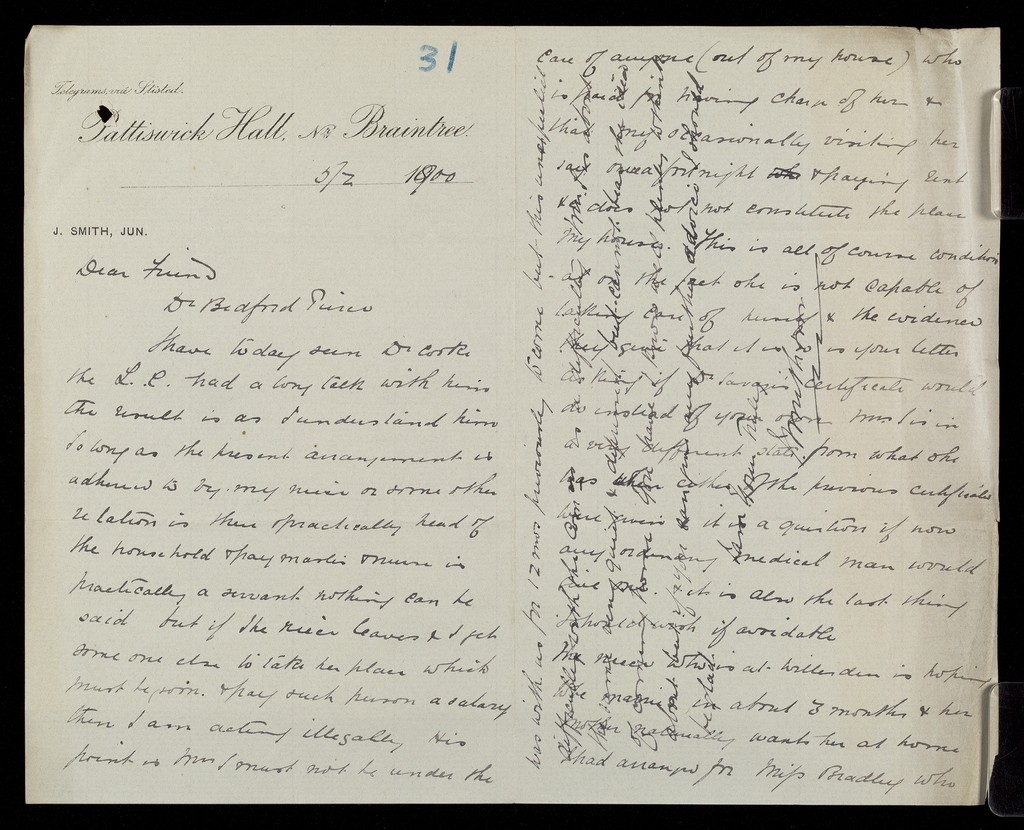 31
Telegrams, via Stisted.
Pattiswick Hall, NR Braintree.
5/2 1900
J. SMITH, JUN.
Dear Friend
Dr Bedford Pierce
I have today seen Dr Cooke
the L.C. had a long talk with him
the result is as I understand him
So long as the present arrangement is
adhered to viz. my niece or some other
relation is there & practically head of
the household & paymaster & nurse is
practically a servant nothing can be
said but if the niece leaves & I get
some one else to take her place which
must be soon. & pay such person a salary
then I am acting illegally His
point is Mrs S must not be under the
care of anyone (out of my house) who
is paid for having charge of her &
that my occasionally visiting her
say once a fortnight & paying rent
&c does not constitute the place
my house. This is all of course condition
on the fact she is not capable of
taking care of herself & the evidence
they give that it is is your letter
asking if Dr Savages certificate would
do instead of your own Mrs S is in
a very different state from what she
was when either of the previous certificates
were given & it is a question if now
any ordinary medical man would
give one. it is also the last thing
I should wish if avoidable
The niece who is at Willesden is hoping
to be married in about 3 months & her
mother naturally wants her at home
I had arranged for Miss Bradley who
was with us for 12 mos previously to come but this unexpected
difficulty
quiet & but cannot bear the idea
of coming home You have I know
about but if you can any further advice I should
be glad
I am